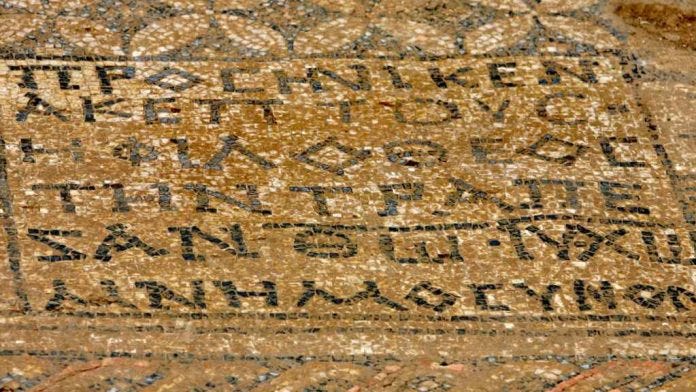 ΠΡΟϹΗΝΙΚΕΝ
ΑΚΕΠΤΟΥϹ
Η ΦΙΛΟΘΕΟϹ
ΤΗΝ ΤΡΑΠΕ
ΖΑΝ ΘΩ ΙΥ ΧΩ
ΜΝΗΜΟϹΥΝΟΝ